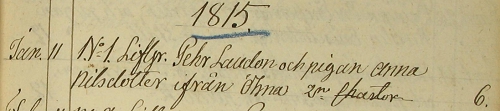 1815.
Jan. 11 No 1. Lifgr. Pehr Laudon och pigan Anna
Nilsdotter ifrån Öhna 2n 6